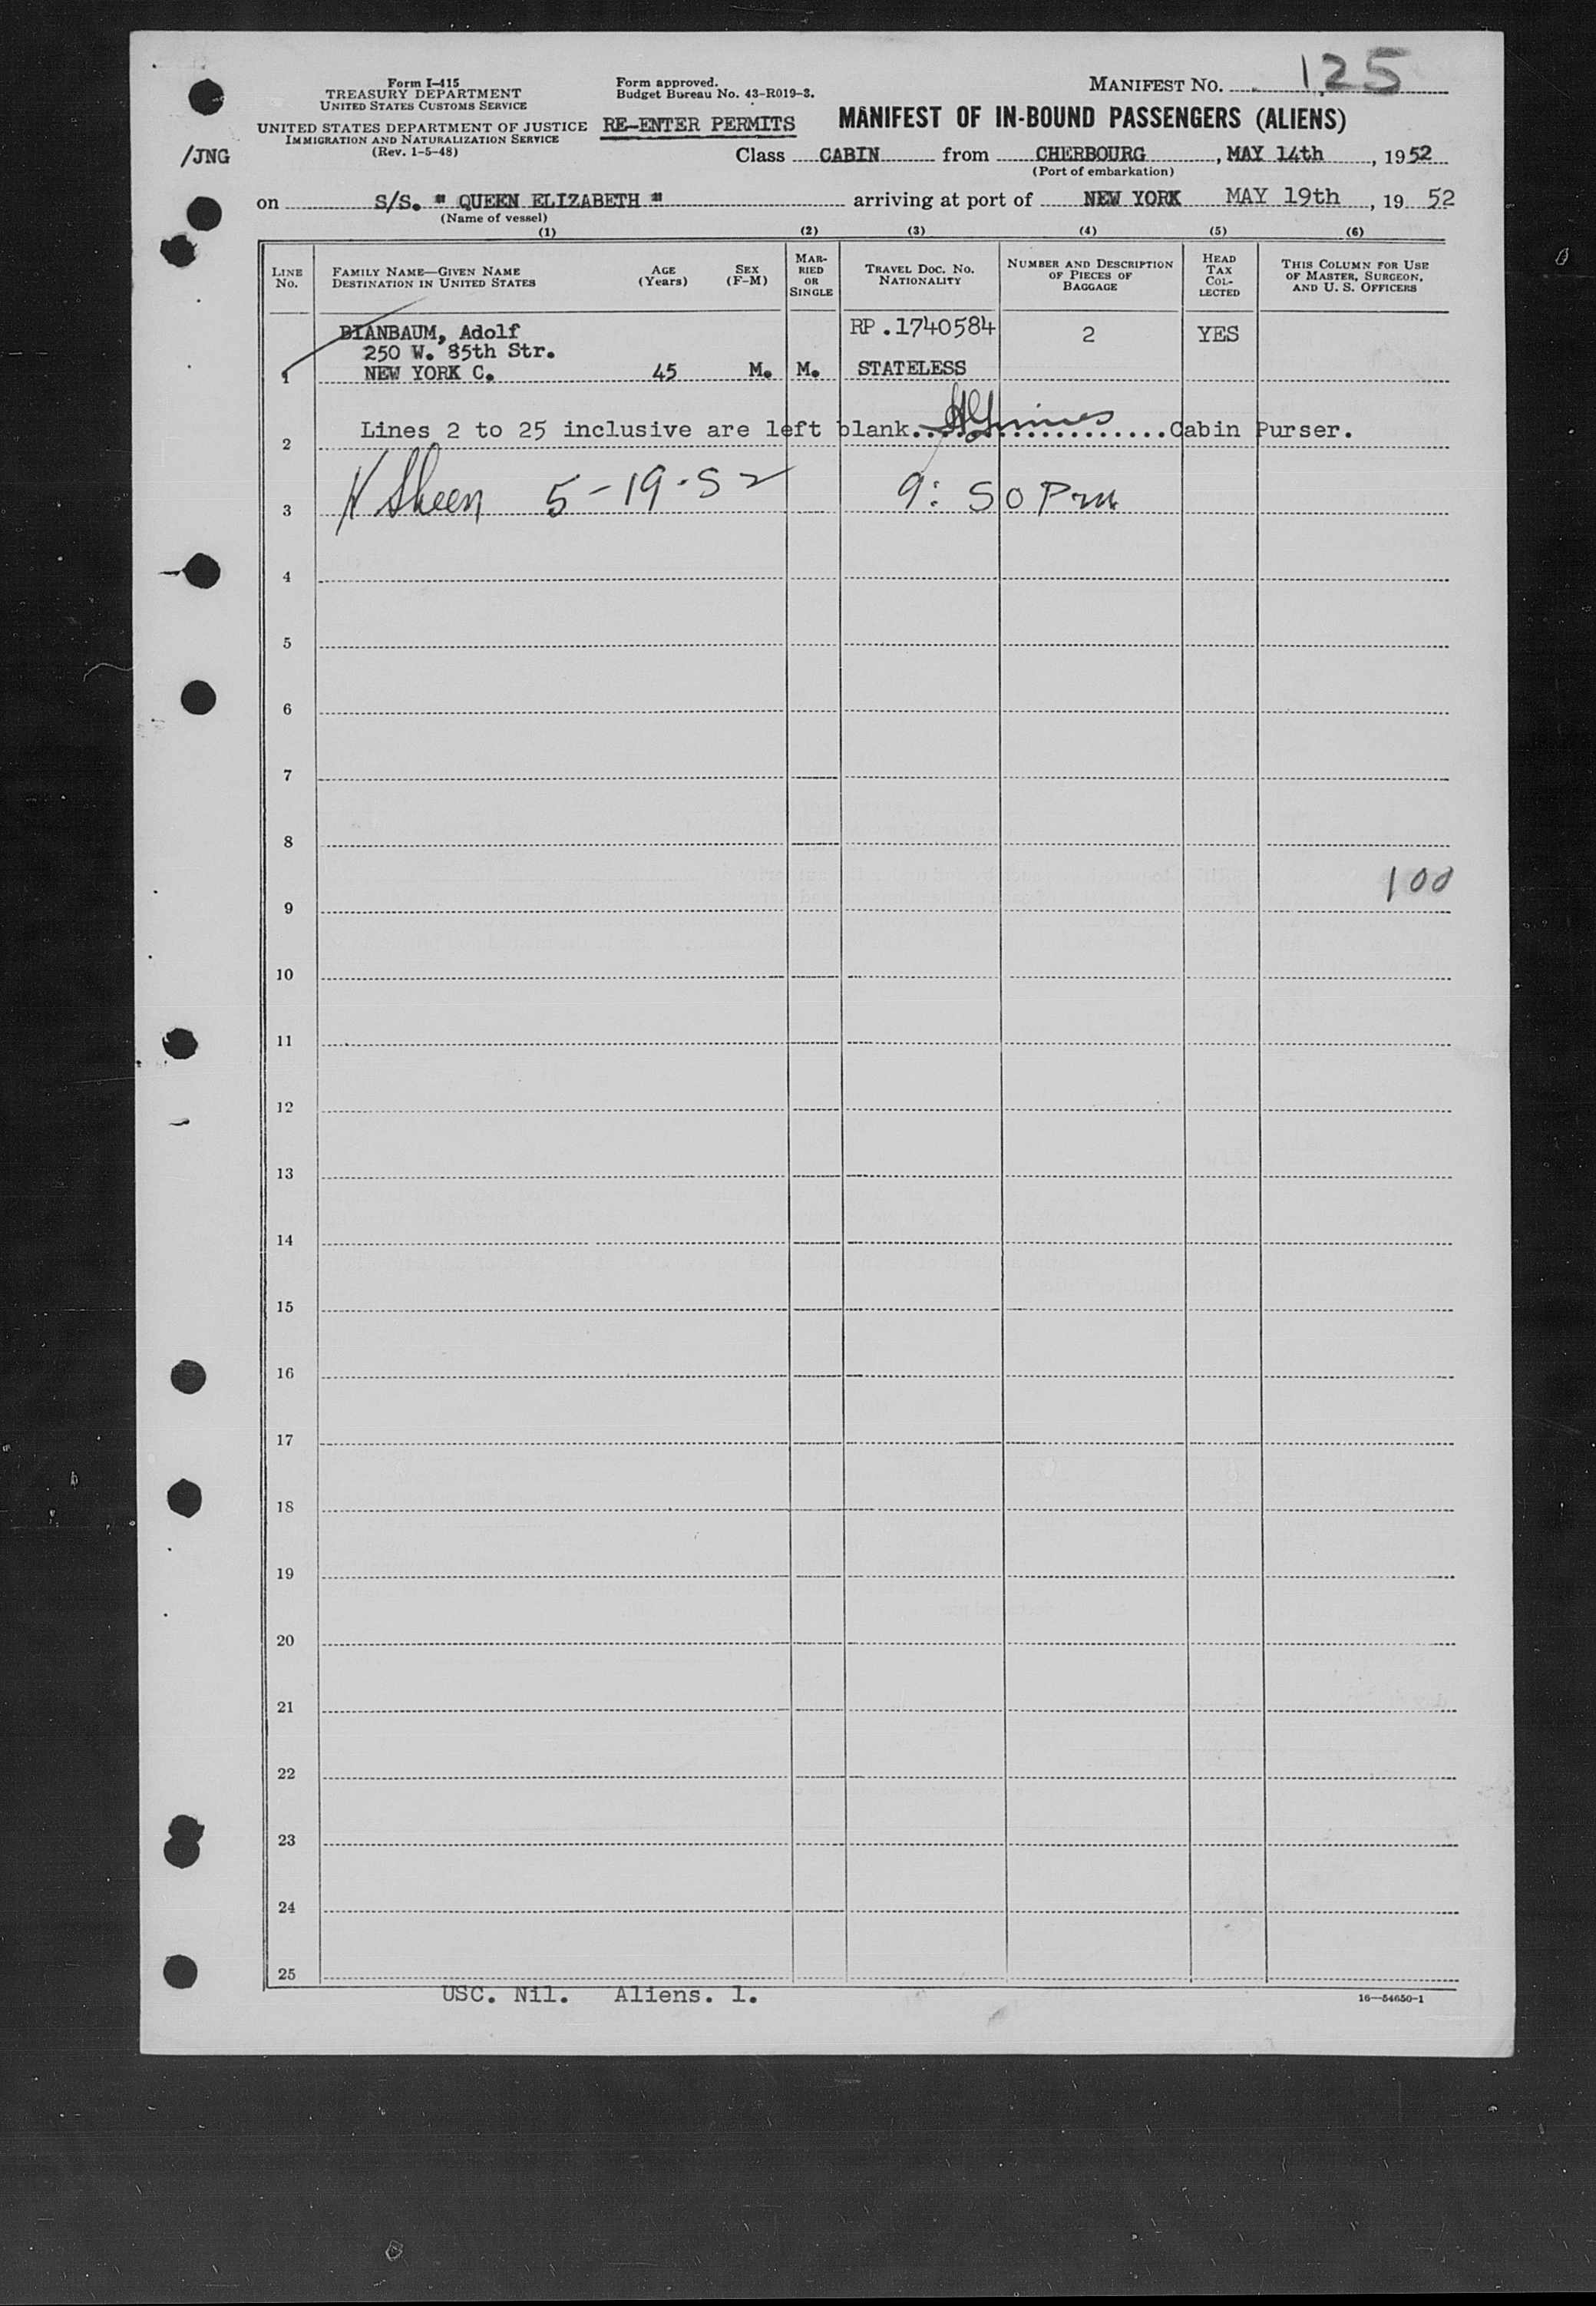 Form I-415
TREASURY DEPARTMENT
UNITED STATES CUSTOMS SERVICE
UNITED STATES DEPARTMENT OF JUSTICE
IMMIGRATION AND NATURALIZATION SERVICE
(Rev. 1-5-48)
/JNG
Form approved.
Budget Bureau No. 43-R019-3.
RE-ENTER PERMITS
MANIFEST NO. 125
MANIFEST OF IN-BOUND PASSENGERS (ALIENS)
Class CABIN from CHERBOURG, MAY 14th, 1952
(Port of embarkation)
on S/S. " QUEEN ELIZABETH " arriving at port of NEW YORK MAY 19th, 19 52
(Name of vessel)
(1) (2) (3) (4) (5) (6)
LINE NO.
FAMILY NAME—GIVEN NAME
DESTINATION IN UNITED STATES
AGE (Years)
SEX (F-M)
MARRIED OR SINGLE
TRAVEL DOC. NO.
NATIONALITY
NUMBER AND DESCRIPTION OF PIECES OF BAGGAGE
HEAD TAX COLLECTED
THIS COLUMN FOR USE OF MASTER, SURGEON, AND U. S. OFFICERS
BIANBAUM, Adolf RP.1740584 2 YES
250 W. 85th Str.
1 NEW YORK C. 45 M. M. STATELESS
2 Lines 2 to 25 inclusive are left blank. Cabin Purser.
3 Sheen 5-19-52 9:50 Pm
4
5
6
7
8
100
9
10
11
12
13
14
15
16
17
18
19
20
21
22
23
24
25
USC. Nil. Aliens. 1.
16—54650-1